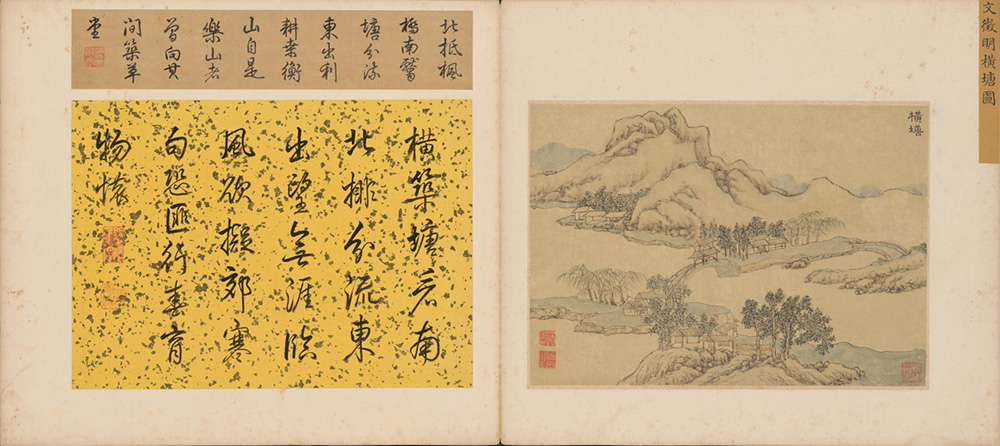 文徵明橫塘圖
橫塘
北抵楓
橋南
塘分流
東出利
耕桒衡
山自是
樂山者
曾向其
間築草
堂
橫築塘南
北排分流東
出望無涯臨
風欲擬郊寒
句恐匪行春育
物懷